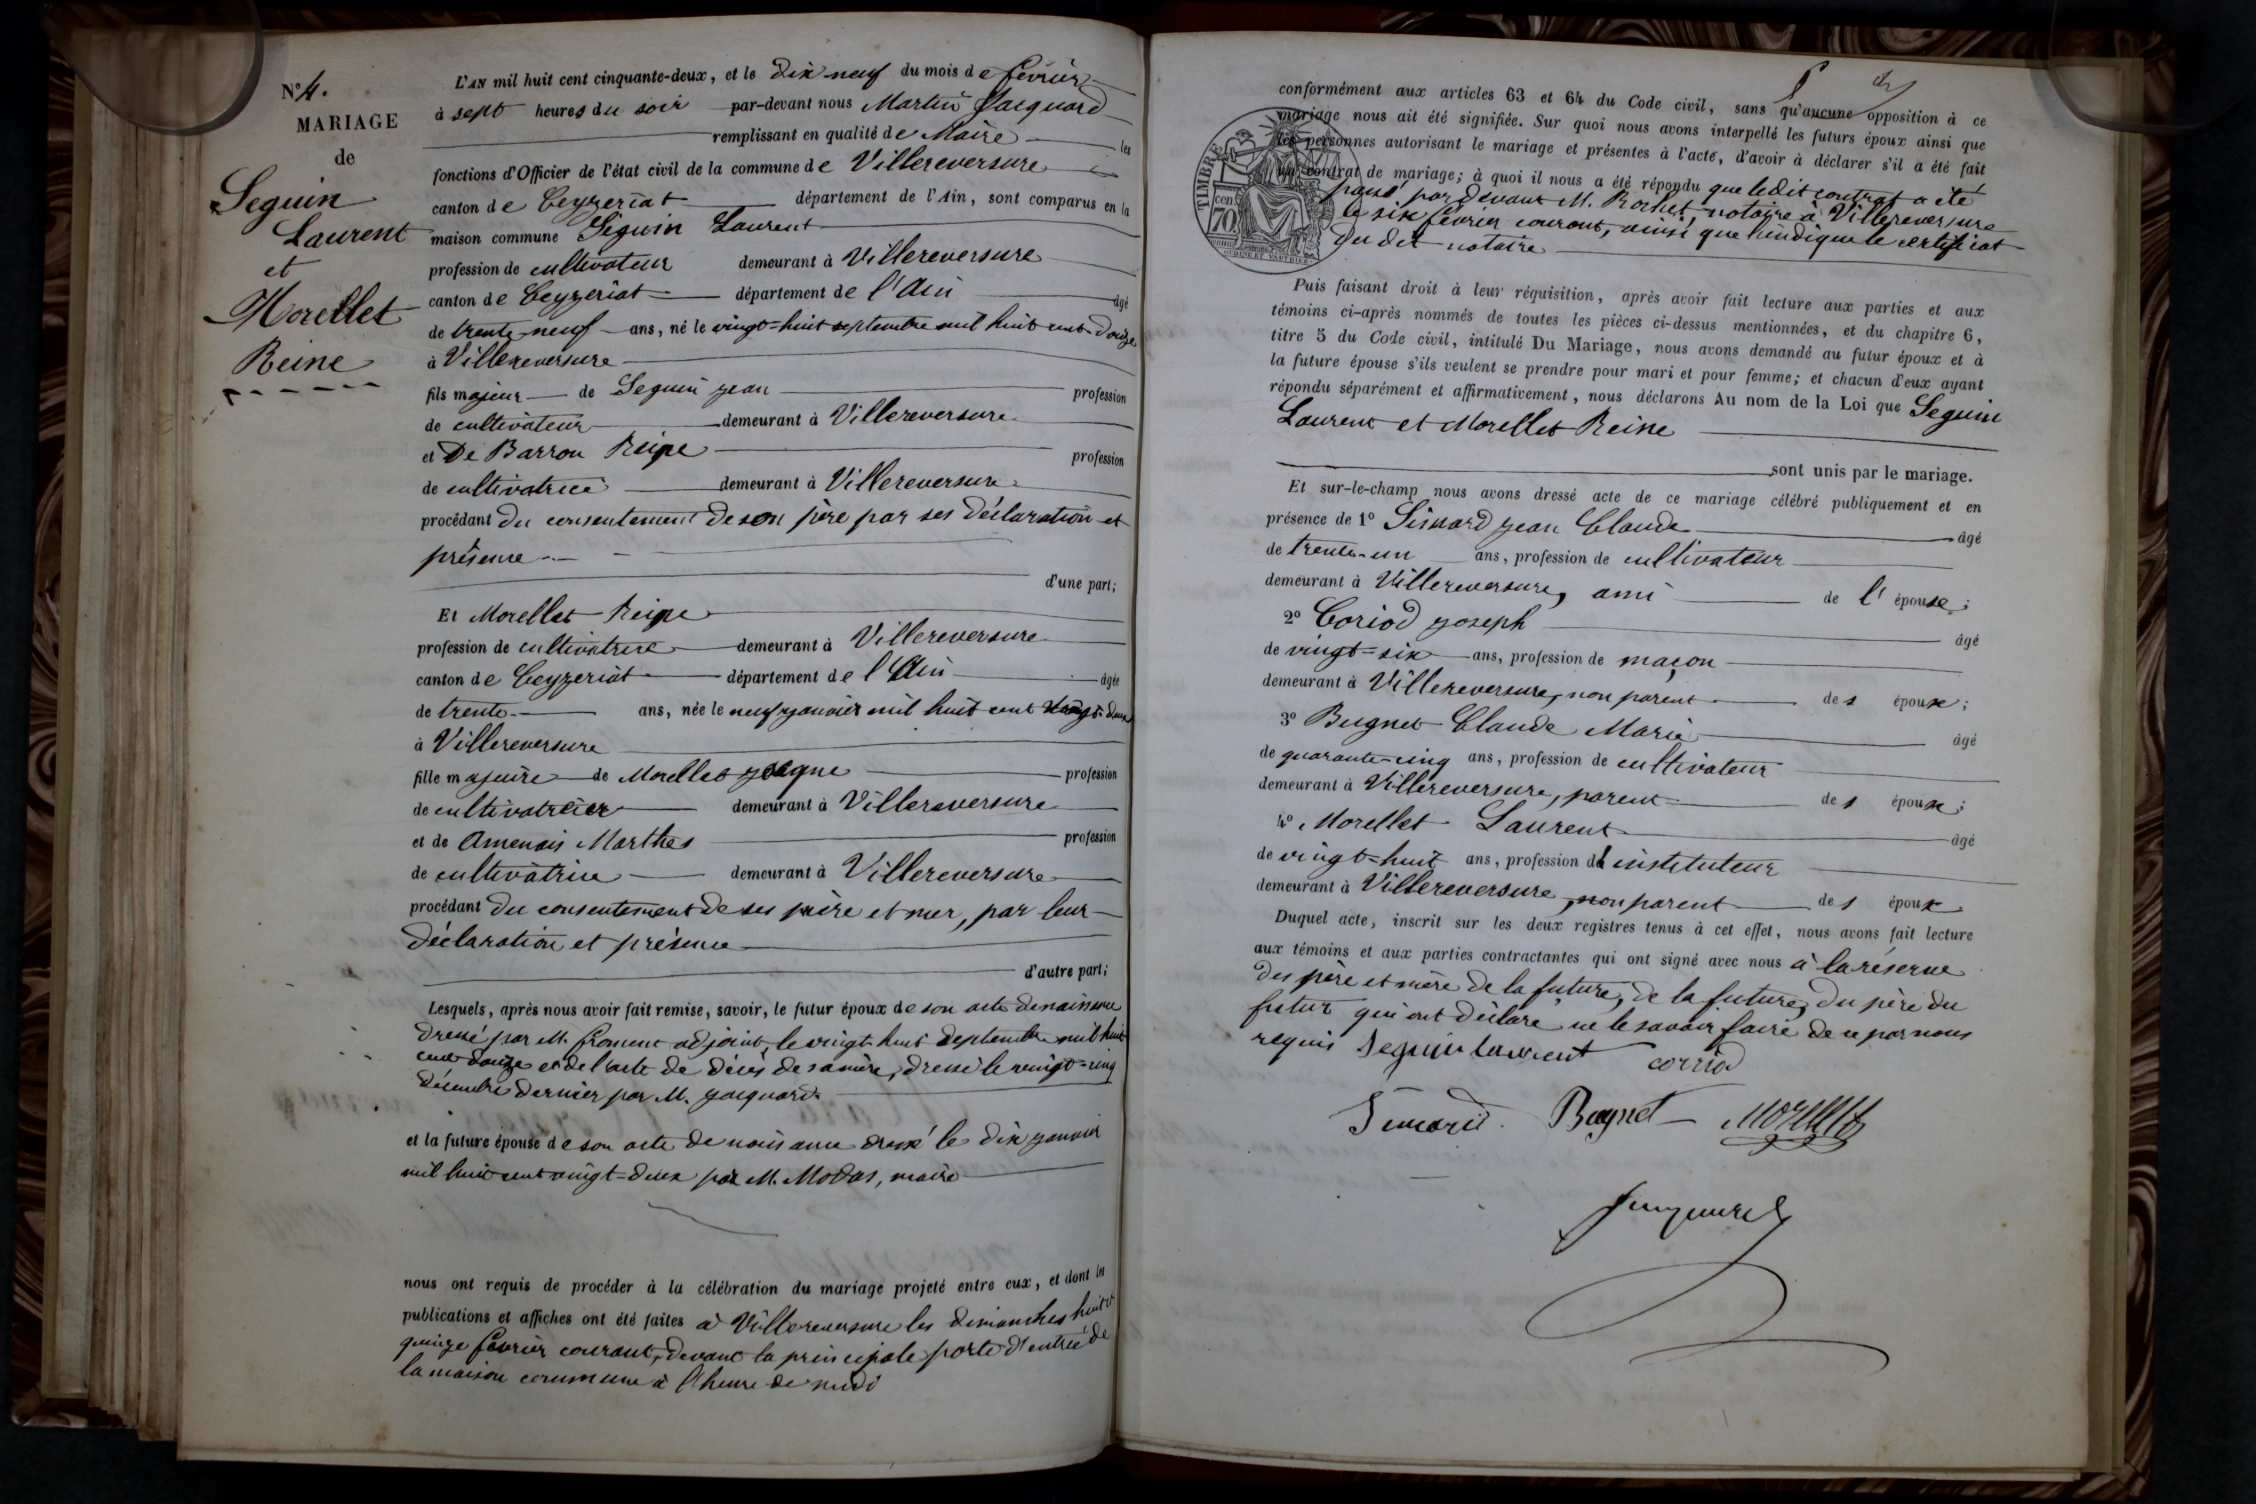 N° 4.
MARIAGE
de
Seguin
Laurent
et
Morellet
Reine
L'AN mil huit cent cinquante-deux, et le dix neuf du mois de février
à sept heures du soir par-devant nous Martin Jacquard
remplissant en qualité de Maire les
fonctions d'Officier de l'état civil de la commune de Villereversure
canton de Ceyzeriat département de l'Ain, sont comparus en la
maison commune Seguin Laurent
profession de cultivateur demeurant à Villereversure
canton de Ceyzeriat département de l'Ain âgé
de trente-neuf ans, né le vingt-huit septembre mil huit cent douze
à Villereversure
fils majeur de Seguin jean profession
de cultivateur demeurant à Villereversure
et De Barron Reine profession
de cultivatrice demeurant à Villereversure
procédant du consentement de son père par ses déclaration et
présence
d'une part;
Et Morellet Reine
profession de cultivatrice demeurant à Villereversure
canton de Ceyzeriat département de l'Ain âgée
de trente ans, née le neuf janvier mil huit cent vingt-deux
à Villereversure
fille majeure de Morellet jacque profession
de demeurant à Villereversure
et de Amenais Marthes profession
de cultivatrice demeurant à Villereversure
procédant du consentement de ses père et mer, par leur
déclaration et présence
d'autre part;
Lesquels, après nous avoir fait remise, savoir, le futur époux de son acte de naissance
dressé par M. froment adjoint, le vingt huit septembre mil huit
cent douze et de l'acte de décès de sa mère, dressé le vingt-cinq
décembre dernier par M. jacquard
et la future épouse de son acte de naissance dressé le dix janvier
mil huit cent vingt-deux par M. Modas, maire
nous ont requis de procéder à la célébration du mariage projeté entre eux, et dont les
publications et affiches ont été faites à Villereversure les dimanches huit et
quinze février courant, devant la principale porte d'entrée de
la maison commune à l'heure de midi
conformément aux articles 63 et 64 du Code civil, sans qu'aucune opposition à ce
mariage nous ait été signifiée. Sur quoi nous avons interpellé les futurs époux ainsi que
les personnes autorisant le mariage et présentes à l'acte, d'avoir à déclarer s'il a été fait
un contrat de mariage; à quoi il nous a été répondu que le dit contrat a été
passé par devant M. Rochet notaire à Villereversure
le six février courant, ainsi que l'indique le certificat
du dit notaire
TIMBRE
70 cen
Puis faisant droit à leur réquisition, après avoir fait lecture aux parties et aux
témoins ci-après nommés de toutes les pièces ci-dessus mentionnées, et du chapitre 6,
titre 5 du Code civil, intitulé Du Mariage, nous avons demandé au futur époux et à
la future épouse s'ils veulent se prendre pour mari et pour femme; et chacun d'eux ayant
répondu séparément et affirmativement, nous déclarons Au nom de la Loi que Seguin
Laurent et Morellet Reine
sont unis par le mariage.
Et sur-le-champ nous avons dressé acte de ce mariage célébré publiquement et en
présence de 1° Simard jean Claude âgé
de trente-un ans, profession de cultivateur
demeurant à Villereversure, ami de l' épouse;
2° Coriod joseph âgé
de vingt-six ans, profession de maçon
demeurant à Villereversure, non parent des époux;
3° Bugnet Claude Marie âgé
de quarante-cinq ans, profession de cultivateur
demeurant à Villereversure, parent des époux;
4° Morellet Laurent âgé
de vingt-huit ans, profession d'instituteur
demeurant à Villereversure, non parent des époux
Duquel acte, inscrit sur les deux registres tenus à cet effet, nous avons fait lecture
aux témoins et aux parties contractantes qui ont signé avec nous à la réserve
des père et mère de la future, de la future, du père du
futur qui ont déclaré ne le savoir faire de ce par nous
requis Seguin laurent corriod
Simard Bugnet Morellet
Jacquard